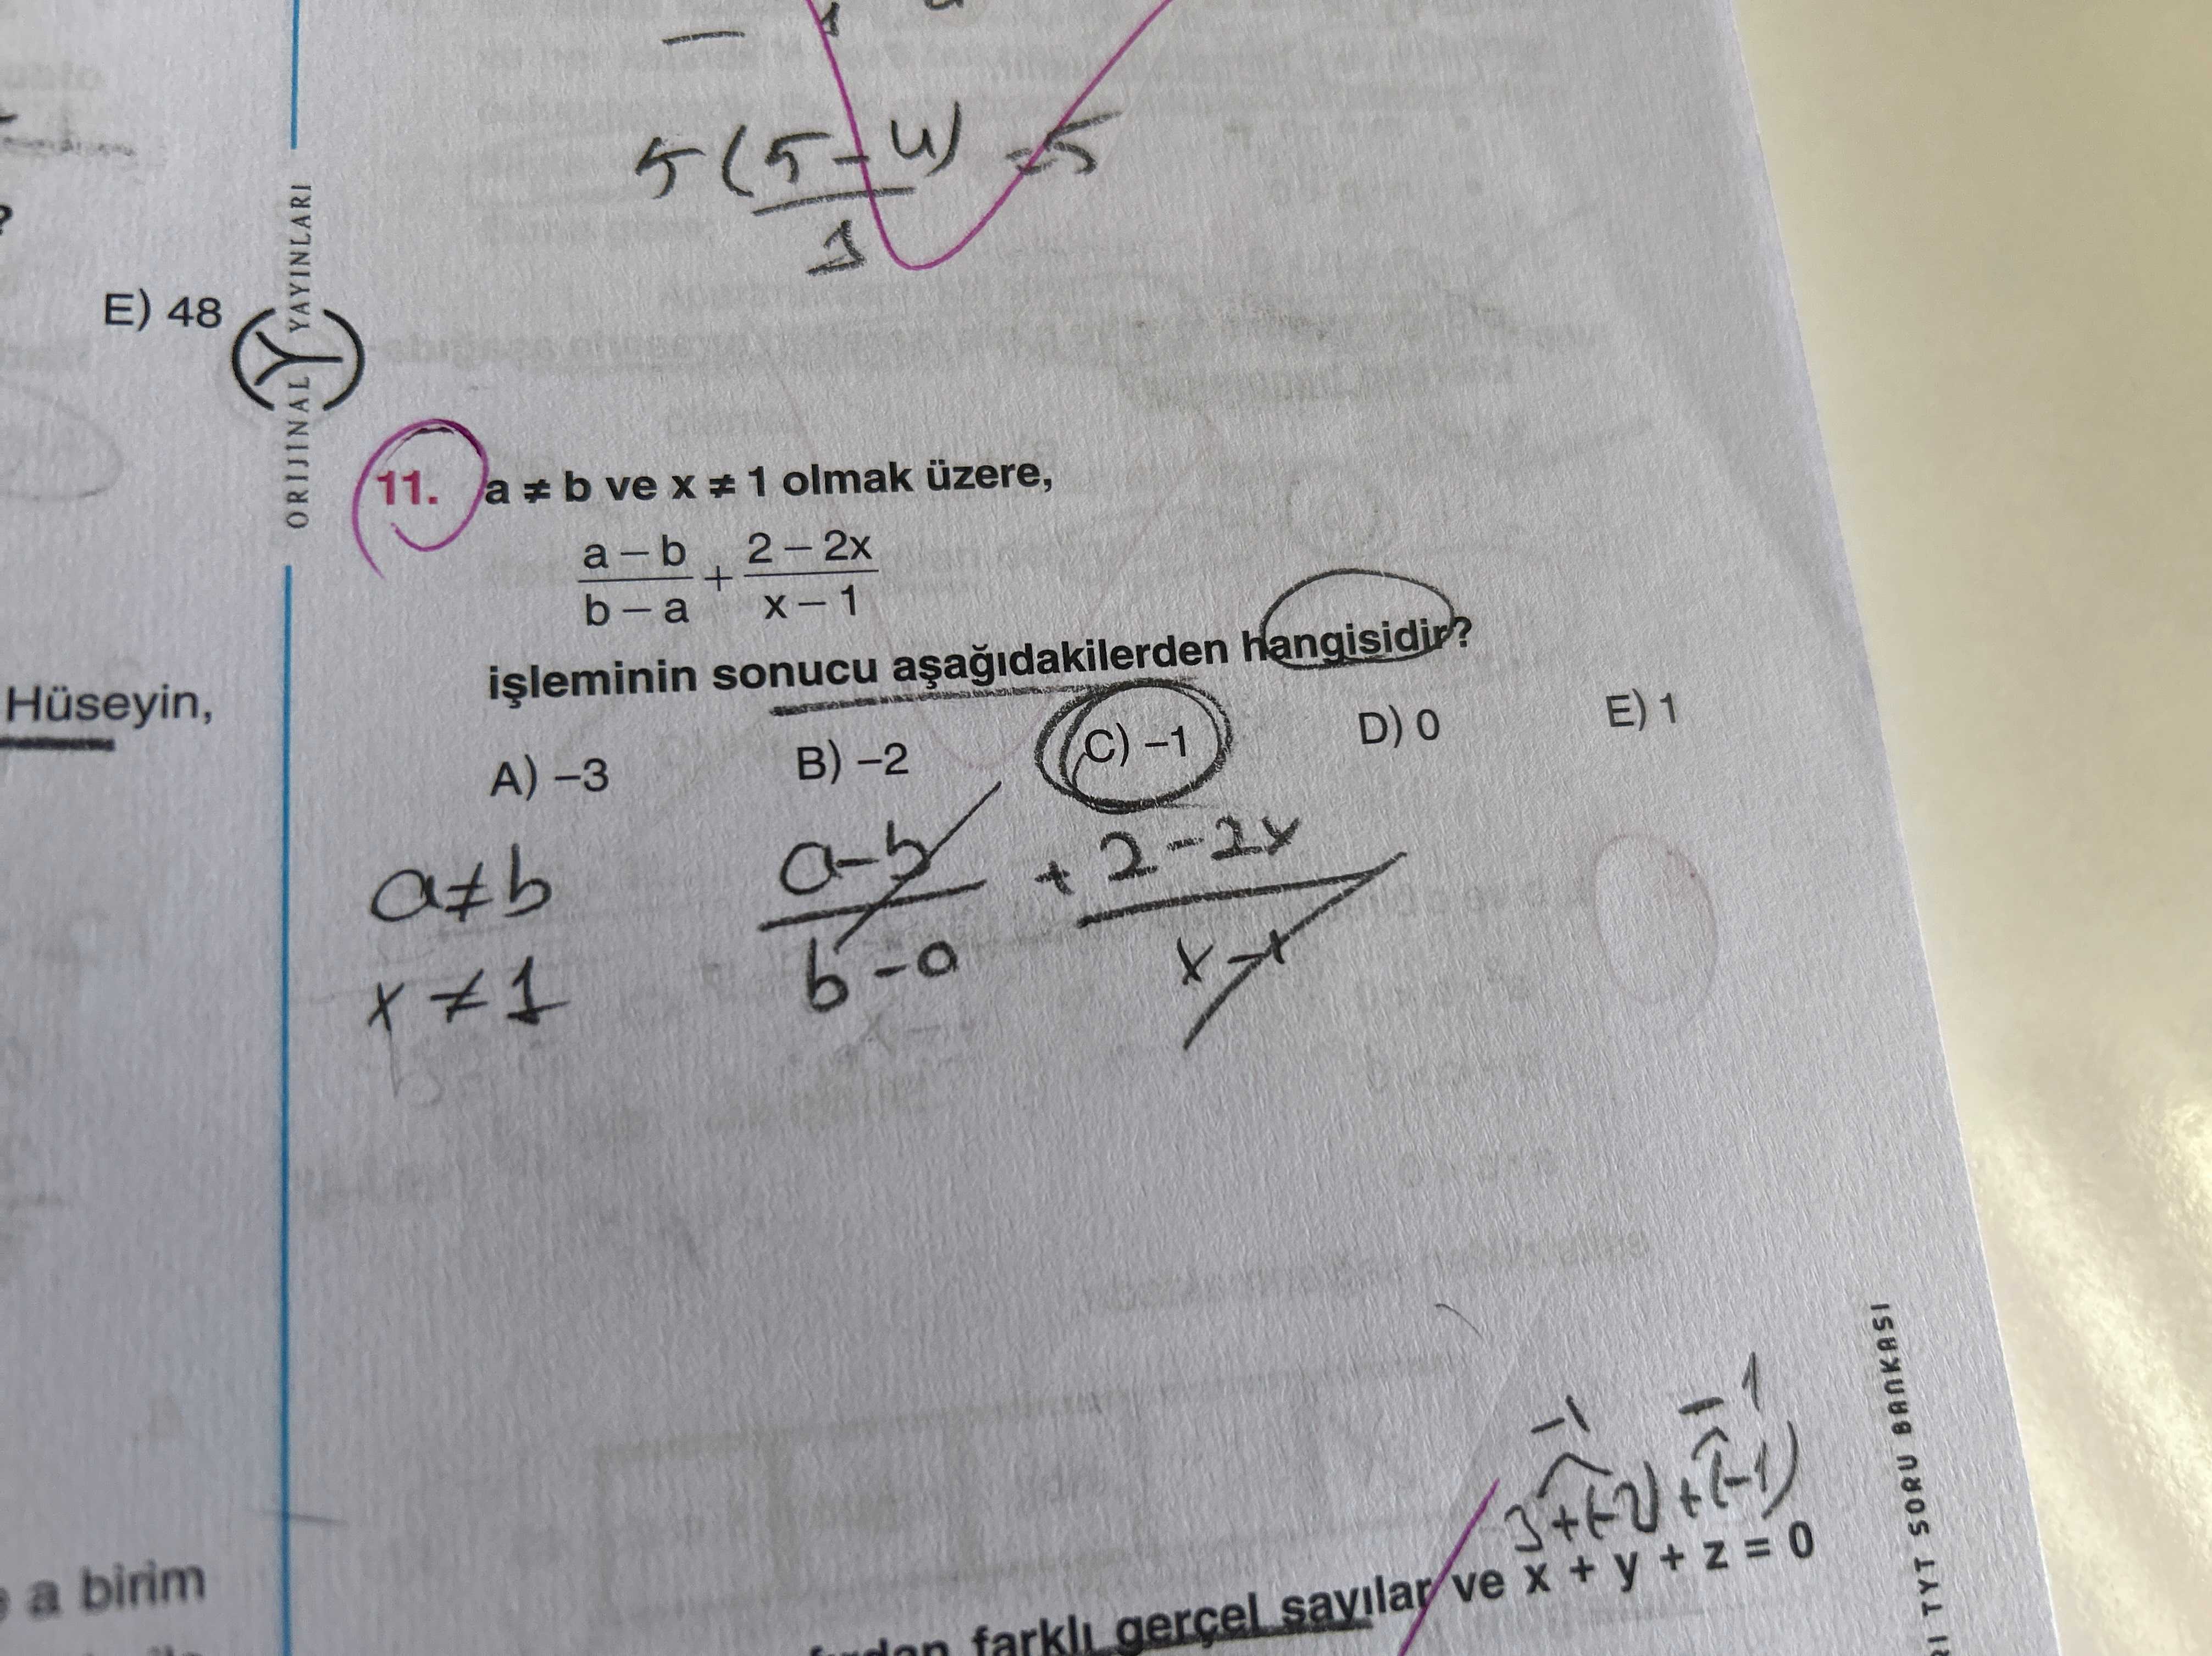 5(5-4) = 5
1
?
E) 48
ORİJİNAL YAYINLARI
11. a ≠ b ve x ≠ 1 olmak üzere,
a – b / b – a + 2 – 2x / x – 1
işleminin sonucu aşağıdakilerden hangisidir?
A) –3 B) –2 C) –1 D) 0 E) 1
Hüseyin,
a≠b
x≠1
a-b / b-a + 2-2x / x-1
-1 -1
3+(-2)+(-1)
farklı gerçel sayılar ve x + y + z = 0
a birim
TYT SORU BANKASI